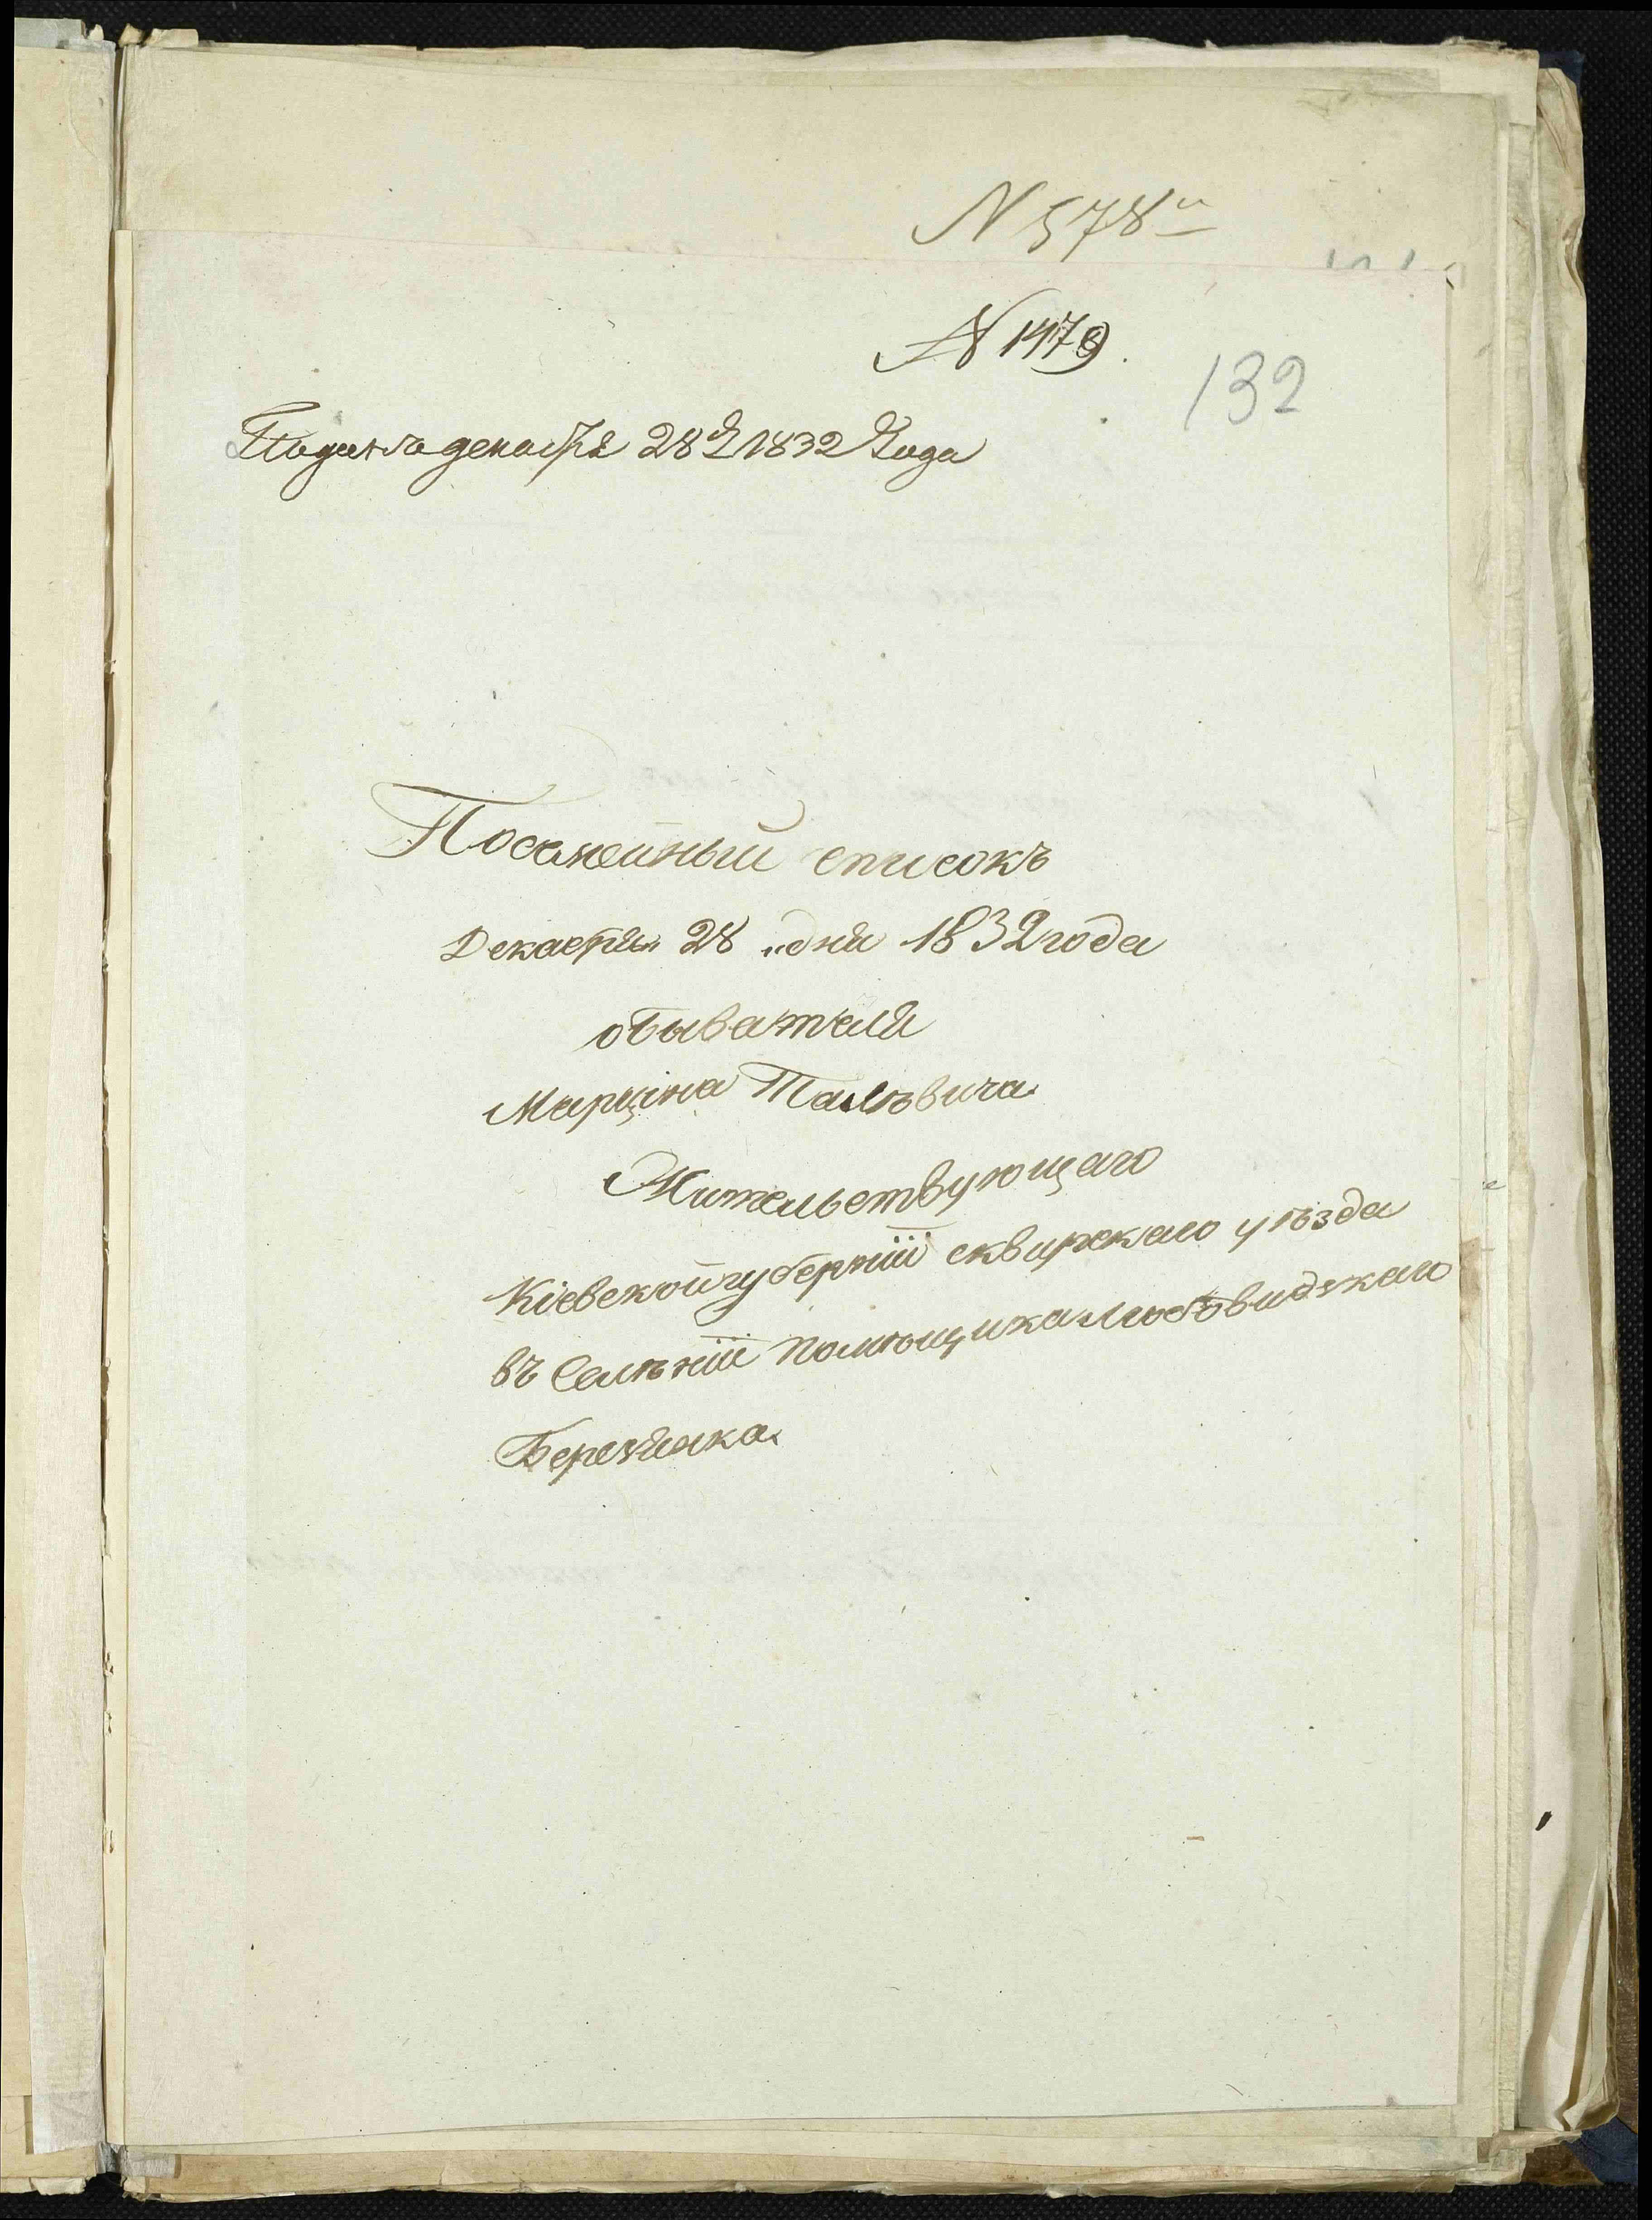 N 578
N 1479.
132
Подана декабря 28 д 1832 Года
Посемейный список
Декабря 28 дня 1832 года
обывателя
Марцѣна Талковича
Жительствующаго
Кіевской губерніи сквирскаго уѣзда
въ Селѣніи помѣщика Любовидзкаго
Березянка